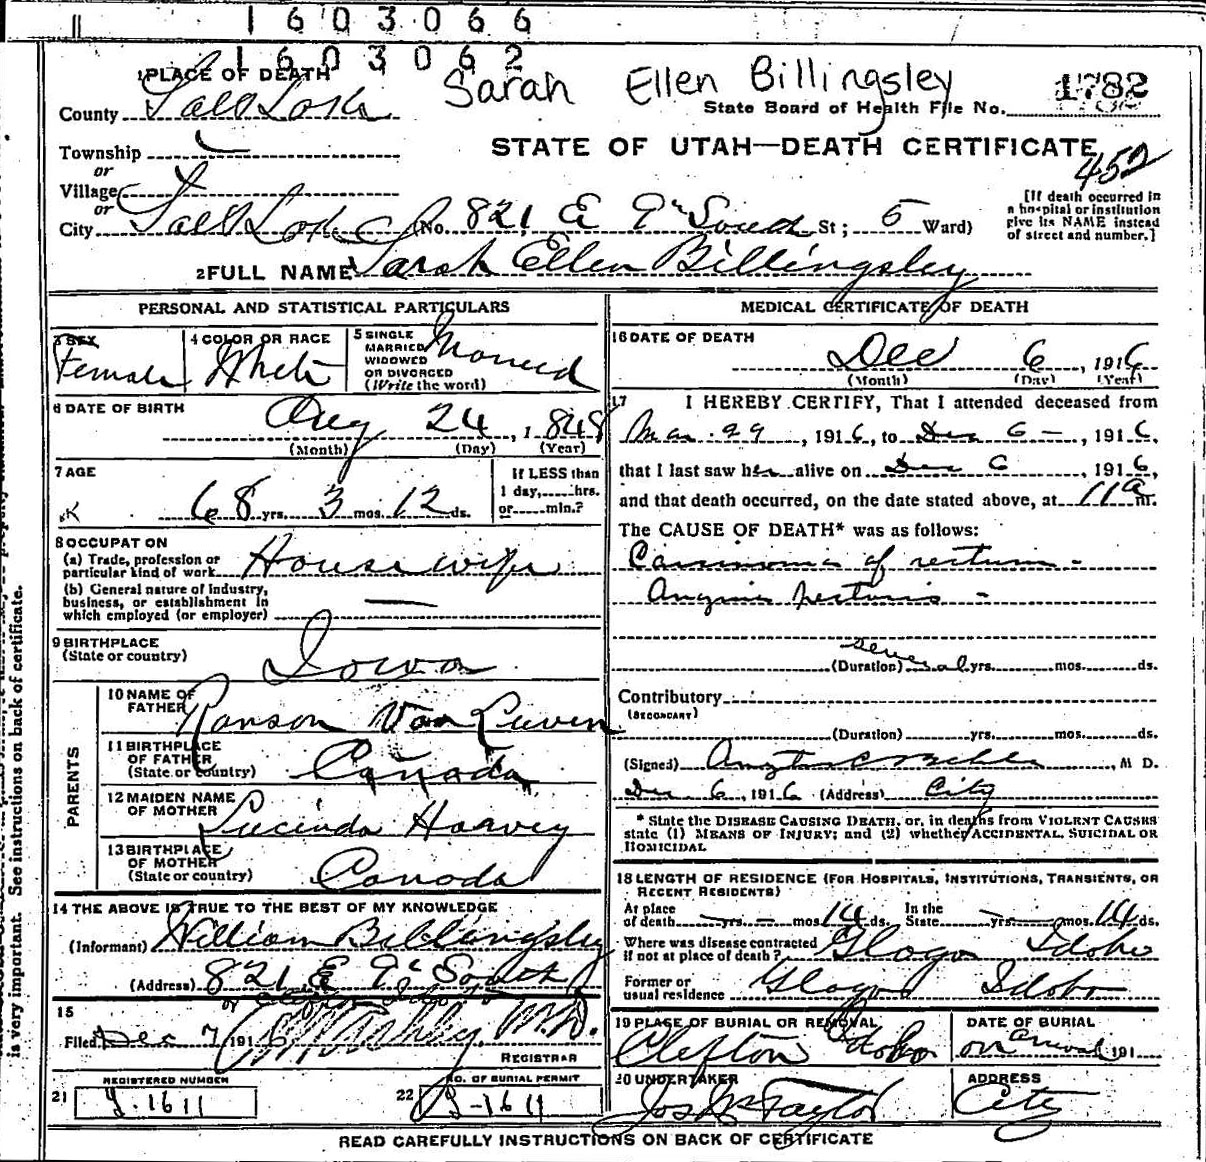 1603066
1603062
Sarah Ellen Billingsley
1782
1 PLACE OF DEATH
County Salt Lake
State Board of Health File No.
Township
or
STATE OF UTAH—DEATH CERTIFICATE
452
Village
or
City Salt Lake C (No. 821 E 9" South St; 5 Ward)
[If death occurred in a hospital or institution give its NAME instead of street and number.]
2 FULL NAME Sarah Ellen Billingsley
PERSONAL AND STATISTICAL PARTICULARS
3 SEX
Female
4 COLOR OR RACE
White
5 SINGLE
MARRIED
WIDOWED
OR DIVORCED
(Write the word)
Married
6 DATE OF BIRTH
Aug 24, 1848
(Month) (Day) (Year)
7 AGE
68 yrs. 3 mos. 12 ds.
If LESS than
1 day, hrs.
or min.?
8 OCCUPATION
(a) Trade, profession or
particular kind of work Housewife
(b) General nature of industry,
business, or establishment in
which employed (or employer)
9 BIRTHPLACE
(State or country) Iowa
PARENTS
10 NAME OF
FATHER Ranson Van Leuven
11 BIRTHPLACE
OF FATHER
(State or country) Canada
12 MAIDEN NAME
OF MOTHER Lucinda Harvey
13 BIRTHPLACE
OF MOTHER
(State or country) Canada
14 THE ABOVE IS TRUE TO THE BEST OF MY KNOWLEDGE
(Informant) William Billingsley
(Address) 821 E 9" South
15
Filed Dec 7 1916 M.D.
REGISTRAR
21 REGISTERED NUMBER
1611
22 NO. OF BURIAL PERMIT
1611
MEDICAL CERTIFICATE OF DEATH
16 DATE OF DEATH
Dec 6, 1916
(Month) (Day) (Year)
17 I HEREBY CERTIFY, That I attended deceased from
Mar. 29, 1916, to Dec 6, 1916,
that I last saw her alive on Dec 6, 1916,
and that death occurred, on the date stated above, at 11 a m.
The CAUSE OF DEATH* was as follows:
Carcinoma of rectum -
Angina pectoris -
(Duration) several yrs. mos. ds.
Contributory
(SECONDARY)
(Duration) yrs. mos. ds.
(Signed) , M D.
Dec 6, 1916 (Address) City
* State the DISEASE CAUSING DEATH, or, in deaths from VIOLENT CAUSES
state (1) MEANS OF INJURY; and (2) whether ACCIDENTAL, SUICIDAL OR
HOMICIDAL
18 LENGTH OF RESIDENCE (FOR HOSPITALS, INSTITUTIONS, TRANSIENTS, OR
RECENT RESIDENTS)
At place
of death yrs. mos. 14 ds. In the
State yrs. mos. 14 ds.
Where was disease contracted
if not at place of death? Idaho
Former or
usual residence Idaho
19 PLACE OF BURIAL OR REMOVAL
Clifton Idaho
DATE OF BURIAL
on arrival 191
20 UNDERTAKER
Jos Wm Taylor
ADDRESS
City
READ CAREFULLY INSTRUCTIONS ON BACK OF CERTIFICATE
is very important. See instructions on back of certificate.